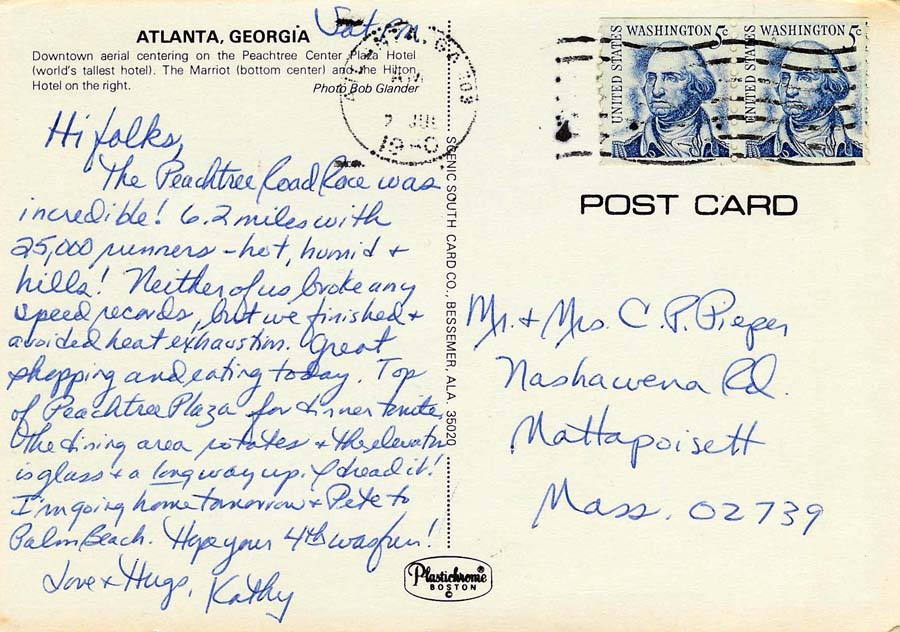 ATLANTA, GEORGIA
Downtown aerial centering on the Peachtree Center Plaza Hotel
(world's tallest hotel). The Marriot (bottom center) and the Hilton
Hotel on the right.
Photo Bob Glander
Hi folks,
The Peachtree Road Race was
incredible! 6.2 miles with
25,000 runners - hot, humid +
hills! Neither of us broke any
speed records, but we finished +
avoided heat exhaustion. Great
shopping and eating today. Top
of Peachtree Plaza for dinner tonite.
The dining area rotates + the elevator
is glass + a long way up. I dread it!
I'm going home tomorrow + Pete to
Palm Beach. Hope your 4th was fun!
Love + Hugs,
Kathy
SCENIC SOUTH CARD CO., BESSEMER, ALA. 35020
Plastichrome®
BOSTON
©
UNITED STATES WASHINGTON 5c
UNITED STATES WASHINGTON 5c
POST CARD
Mr. + Mrs. C. P. Pieper
Nashawena Rd.
Mattapoisett
Mass. 02739